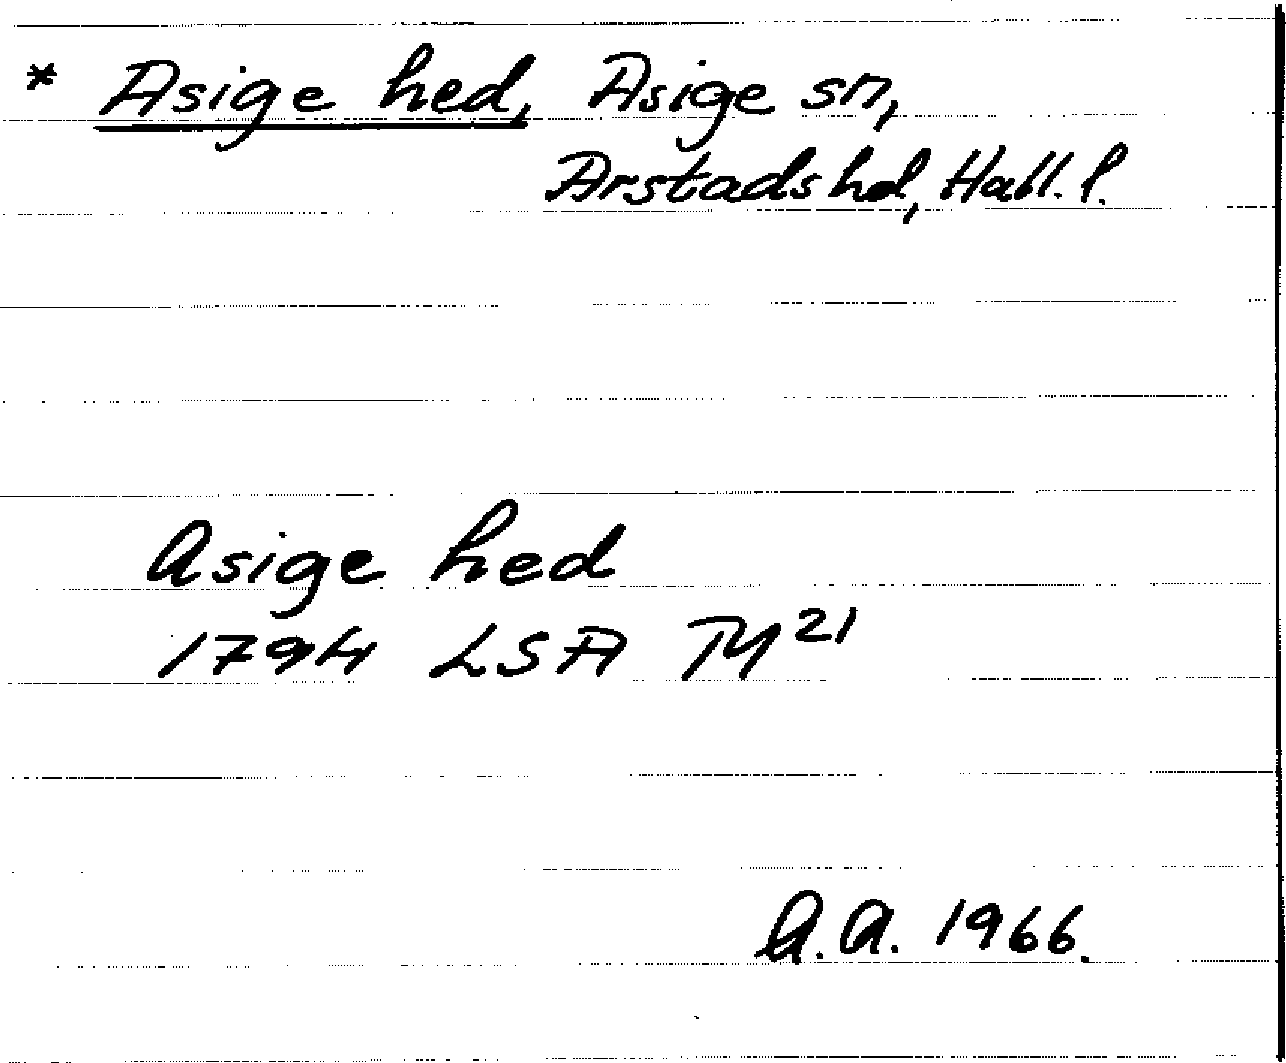 * Asige hed, Asige sn,
Årstads hd, Hall. l.
Asige hed
1794 LSA Ty²¹
A.A. 1966.